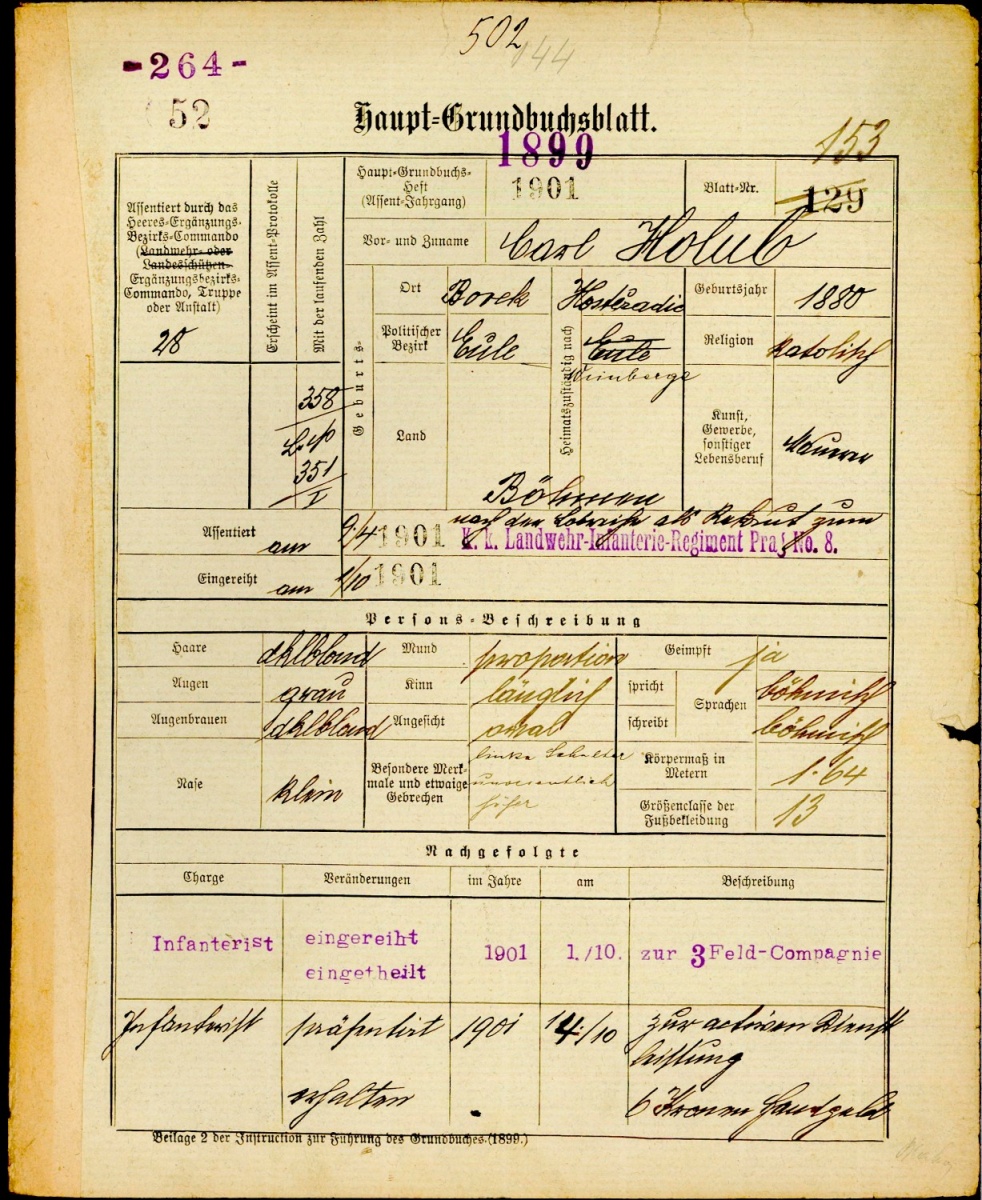 502
144
-264-
52
Haupt=Grundbuchsblatt.
1899
153
Assentiert durch das
Heeres=Ergänzungs=
Bezirks=Commando
(Landwehr= oder
Landesschützen=
Ergänzungsbezirks=
Commando, Truppe
oder Anstalt)
28
Erscheint im Assent=Protokolle
Mit der laufenden Zahl
358
351
I
Haupt=Grundbuchs=
Heft
(Assent=Jahrgang)
1901
Blatt=Nr.
129
Vor= und Zuname
Carl Holub
Geburts=
Ort
Borek
Heimatszuständig nach
Hostěradic
Geburtsjahr
1880
Politischer
Bezirk
Eule
Eule
Weinberge
Religion
katolisch
Land
Böhmen
Kunst,
Gewerbe,
sonstiger
Lebensberuf
Maurer
Assentiert
am 9/4 1901
nach der Losreihe als Rekrut zum
K. k. Landwehr-Infanterie-Regiment Prag No. 8.
Eingereiht
am 1/10 1901
Persons=Beschreibung
Haare dklblond
Mund proportion
Geimpft ja
Augen grau
Kinn länglich
spricht
schreibt
Sprachen
böhmisch
böhmisch
Augenbrauen dklblond
Angesicht oval
Nase klein
Besondere Merk=
male und etwaige
Gebrechen
linke Schulter
unwesentlich
höher
Körpermaß in
Metern
1·64
Größenclasse der
Fußbekleidung
13
Nachgefolgte
Charge Veränderungen im Jahre am Beschreibung
Infanterist eingereiht 1901 1./10. zur 3 Feld-Compagnie
eingetheilt
Infanterist präsentirt 1901 14./10 zur activen Dienst
leistung
erhalten 6 Kronen Handgeld
Beilage 2 der Instruction zur Führung des Grundbuches (1899.)